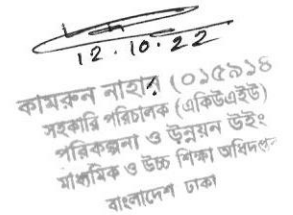 12.10.22
কামরুন নাহার (০১৫৯১৪
সহকারি পরিচালক (একিউএইউ)
পরিকল্পনা ও উন্নয়ন উইং
মাধ্যমিক ও উচ্চ শিক্ষা অধিদপ্তর
বাংলাদেশ ঢাকা